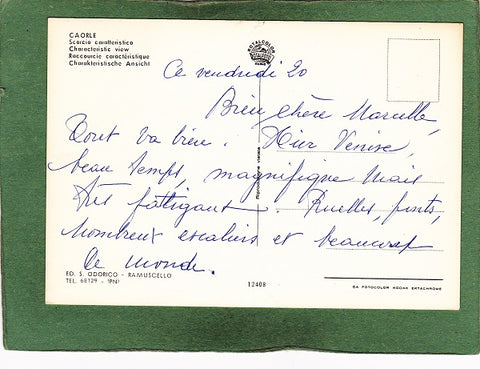 CAORLE
Scorcio caratteristico
Characteristic view
Raccourcie caractéristique
Charakteristische Ansicht
ROTALCOLOR
Ce vendredi 20
Bien chère Marcelle,
Tout va bien. Hier Venise,
beau temps, magnifique mais
très fatigant. Ruelles, ponts,
nombreux escaliers et beaucoup
de monde.
ED. S. ODORICO - RAMUSCELLO
TEL. 68129 - (PN)
12408
DA FOTOCOLOR KODAK EKTACHROME